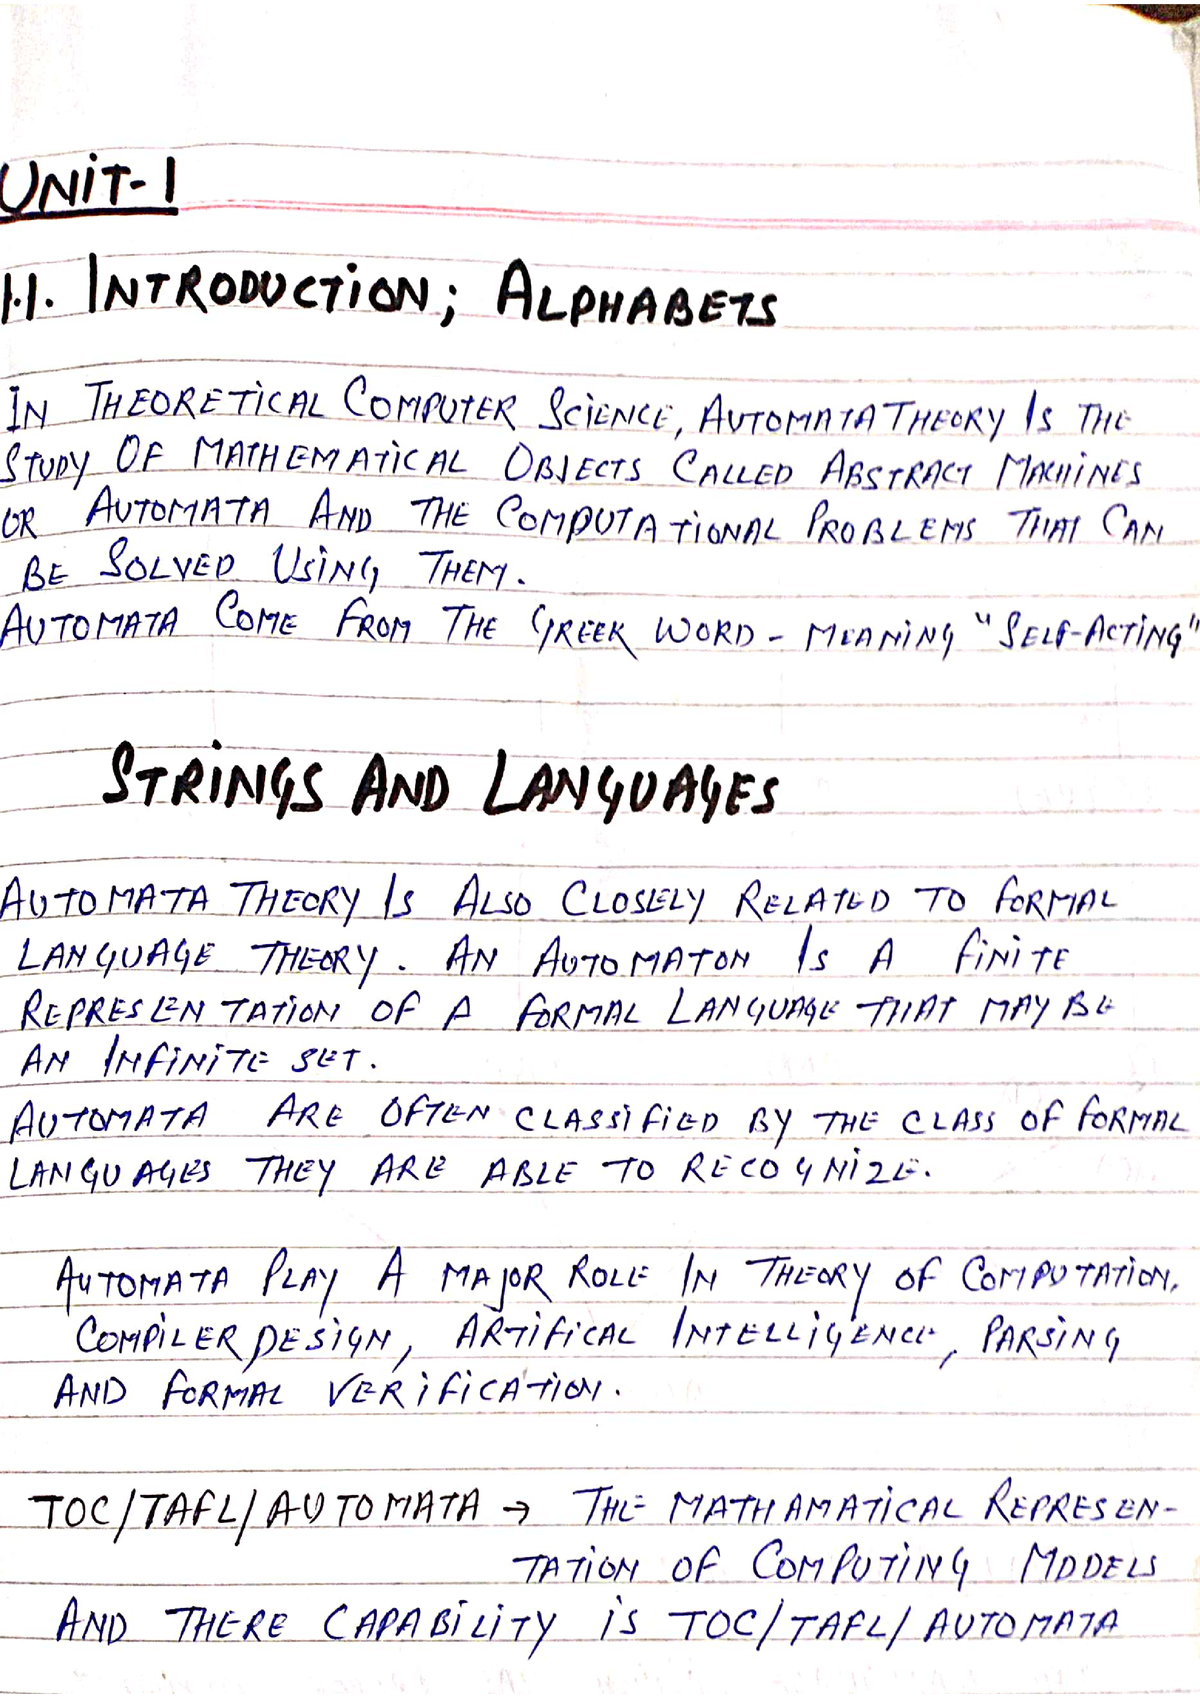 UNIT-1
1.1. INTRODUCTION; ALPHABETS
IN THEORETICAL COMPUTER SCIENCE, AUTOMATA THEORY IS THE
STUDY OF MATHEMATICAL OBJECTS CALLED ABSTRACT MACHINES
OR AUTOMATA AND THE COMPUTATIONAL PROBLEMS THAT CAN
BE SOLVED USING THEM.
AUTOMATA COME FROM THE GREEK WORD - MEANING "SELF-ACTING"
STRINGS AND LANGUAGES
AUTOMATA THEORY IS ALSO CLOSELY RELATED TO FORMAL
LANGUAGE THEORY. AN AUTOMATON IS A FINITE
REPRESENTATION OF A FORMAL LANGUAGE THAT MAY BE
AN INFINITE SET.
AUTOMATA ARE OFTEN CLASSIFIED BY THE CLASS OF FORMAL
LANGUAGES THEY ARE ABLE TO RECOGNIZE.
AUTOMATA PLAY A MAJOR ROLE IN THEORY OF COMPUTATION,
COMPILER DESIGN, ARTIFICAL INTELLIGENCE, PARSING
AND FORMAL VERIFICATION.
TOC/TAFL/AUTOMATA → THE MATHAMATICAL REPRESEN-
TATION OF COMPUTING MODELS
AND THERE CAPABILITY IS TOC/TAFL/AUTOMATA